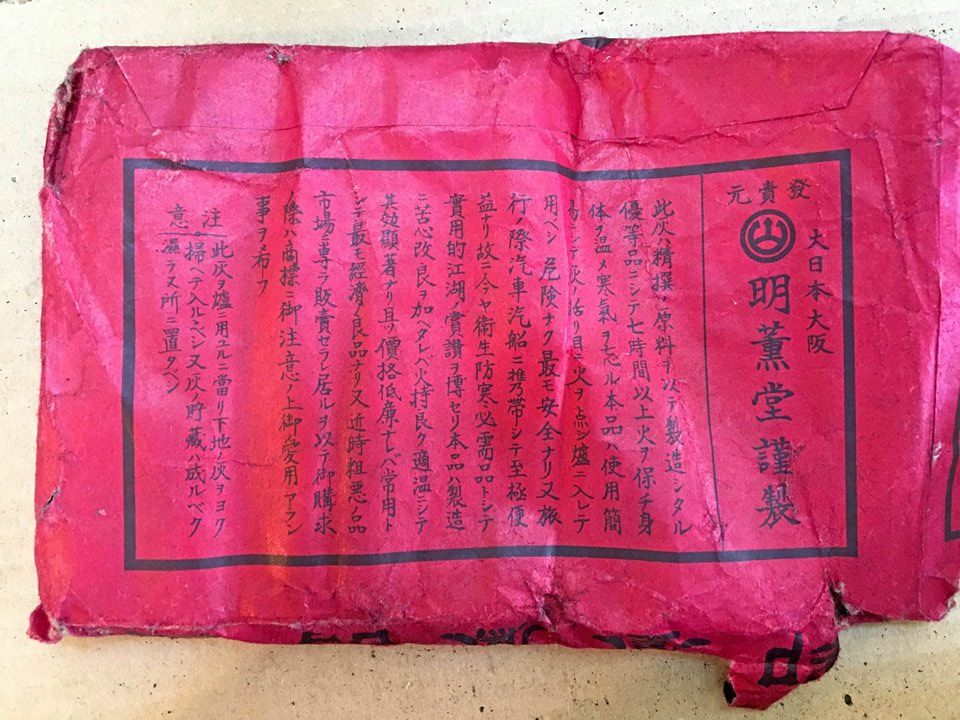 發賣元
大日本大阪
山 明薫堂謹製
此灰ハ精撰ノ原料ヲ以テ製造シタル
優等品ニシテ七時間以上火ヲ保チ身
体ヲ温メ寒氣ヲ忘ル本品ハ使用簡
易ニシテ火ノ活リ目ニ火ヲ点ジ爐ニ入レテ
用ベシ危険ナク最モ安全ナリ又旅
行ノ際汽車汽船ニ携帯シテ至極便
益ナリ故ニ今ヤ衛生防寒必需品トシテ
實用的江湖ノ賞讃ヲ博セリ本品ハ製造
ニ苦心改良ヲ加ヘタレバ火持良ク適温ニシテ
其効顯著ナリ且ツ價格低廉ナレバ常用ト
シテ最モ經濟ノ良品ナリ又近時粗悪ノ品
市場ニ専ラ販賣セラレ居ルヲ以テ御購求
ノ際ハ商標ニ御注意ノ上御愛用アラン
事ヲ希フ
注意
此灰ヲ爐ニ用ユルニ當リ下地ノ灰ヲヨク
掃ヘテ入ルベシ又灰ノ貯蔵ハ成ルベク
濕ラヌ所ニ置タベシ